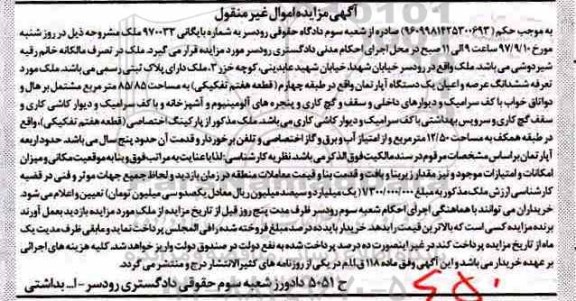 آگهی مزایده اموال غیر منقول
به موجب حکم (۹۶۰۹۹۸۱۴۲۵۳۰۰۶۹۳) صادره از شعبه سوم دادگاه حقوقی رودسر به شماره بایگانی ۹۷۰۰۳۳ ملک مشروحه ذیل در روز شنبه
مورخ ۹۷/۹/۱۰ ساعت ۹ الی ۱۱ صبح در محل اجرای احکام مدنی دادگستری رودسر مورد مزایده قرار می گیرد. ملک در تصرف مالکانه خانم رقیه
شیردوشی می باشد. ملک واقع در رودسر خیابان شهدا، خیابان شهید عابدینی، کوچه خزر ۳، ملک دارای پلاک ثبتی رسمی می باشد. ملک مورد
تعرفه ششدانگ عرصه و اعیان یک دستگاه آپارتمان واقع در طبقه چهارم (قطعه هفتم تفکیکی) به مساحت ۸۵/۸۵ متر مربع مشتمل بر هال و
دو اتاق خواب با کف سرامیک و دیوارهای داخلی و سقف و گچ کاری و پنجره های آلومینیوم و آشپزخانه و با کف سرامیک و دیوار کاشی کاری و
سقف گچ کاری و سرویس بهداشتی با کف سرامیک و دیوار کاشی کاری می باشد. ملک مذکور از پارکینگ اختصاصی (قطعه هفتم تفکیکی)، واقع
در طبقه همکف به مساحت ۱۲/۵۰ متر مربع و از امتیاز آب و برق و گاز اختصاصی و تلفن برخوردار و قدمت آن حدود پنج سال می باشد. حدود اربعه
آپارتمان بر اساس مشخصات مرقوم در سند مالکیت فوق الذکر می باشد. نظریه کارشناسی: لذا با عنایت به مراتب فوق و بنا به موقعیت مکانی و میزان
امکانات و امتیازات موجود و نیز مقدار زیربنا و بافت و قدمت بنا و قیمت معاملات منطقه در زمان بازدید و لحاظ جمیع جهات موثر و فنی در قضیه
کارشناسی ارزش ملک مذکور به مبلغ ۱/۳۰۰/۰۰۰/۰۰۰ (یک میلیارد و سیصد میلیون ریال معادل یکصد و سی میلیون تومان) تعیین و اعلام می شود.
خریداران می توانند با هماهنگی اجرای احکام شعبه سوم رودسر ظرف مدت پنج روز قبل از تاریخ مزایده از ملک مورد مزایده بازدید بعمل آورند
برنده مزایده کسی است که بالاترین قیمت را بدهد. خریدار باید ده درصد مبلغ فروخته شده را فی المجلس پرداخت نماید و مابقی ظرف مدت یک
ماه از تاریخ مزایده پرداخت کند در غیر اینصورت ده درصد پرداخت شده به نفع دولت در صندوق دولت واریز خواهد شد. کلیه هزینه های اجرائی
بر عهده خریدار می باشد و این آگهی وفق ماده ۱۱۸ ق.ا.م در یکی از روزنامه های کثیرالانتشار درج و منتشر می گردد.
ح ۵۰۵۱ دادورز شعبه سوم حقوقی دادگستری رودسر – ا... بداشتی